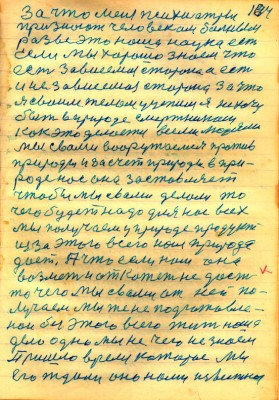 184
За что меня психиатры
признают человеком больным
Разве это наша наука ест
если мы хорошо знаем что
ест Зависемая сторона ест
и не зависемая сторона За то
я своим телом учении я не хочу
быть в природе смертником
Как это делаете всеми морями
Мы своими вооружаемся против
природы и за счет природы в при-
роде нас она заставляет
чтобы мы своими делами то
чего будет надо для нас всех
мы получаем у природе продукт
из за этого всего нам природа
дает. А что если нам она
возмет и откажет не даст
то чего мы своими от ней по-
лучаем мы же не подготовле-
ны без этого всего жит наше
дело одно мы не чего не знаем
Пришло время которое мы
его ждали оно нами